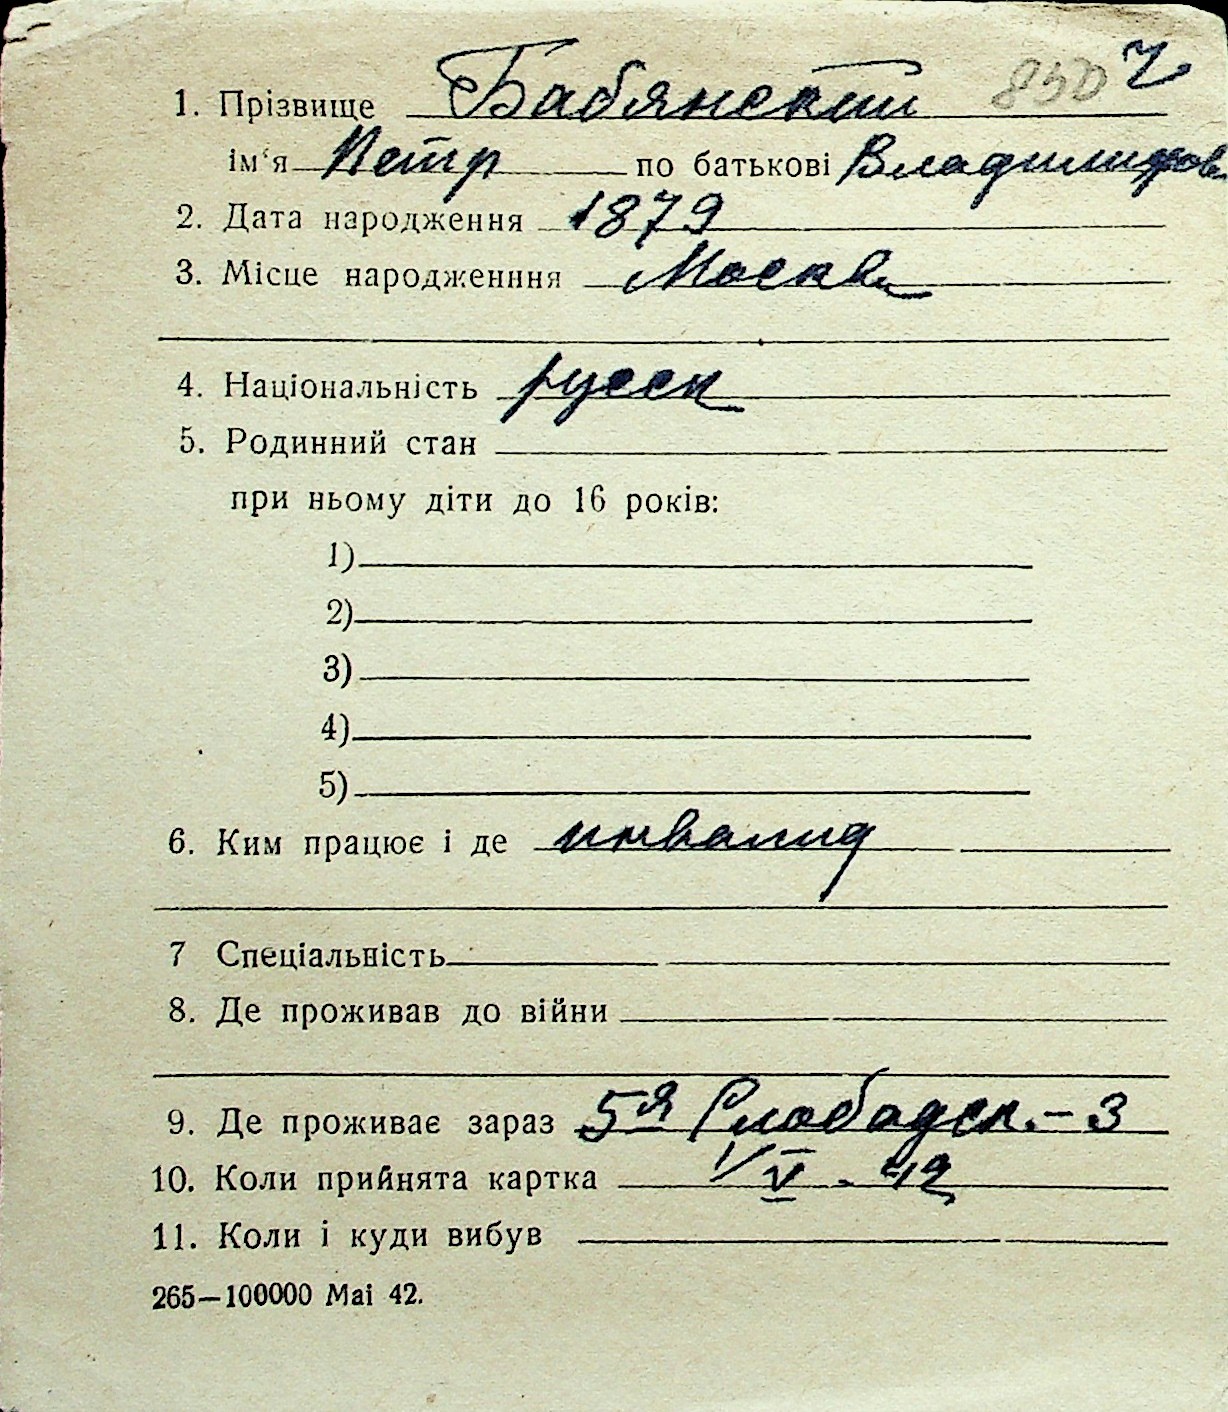 1. Прізвище Бабянский 850 ч
ім'я Петр по батькові Владимиров
2. Дата народження 1879
3. Місце народженння Москва
4. Національність русск
5. Родинний стан
при ньому діти до 16 років:
1)
2)
3)
4)
5)
6. Ким працює і де инвалид
7 Спеціальність
8. Де проживав до війни
9. Де проживає зараз 5я Слободск. - 3
10. Коли прийнята картка 1/V - 42
11. Коли і куди вибув
265—100000 Маі 42.